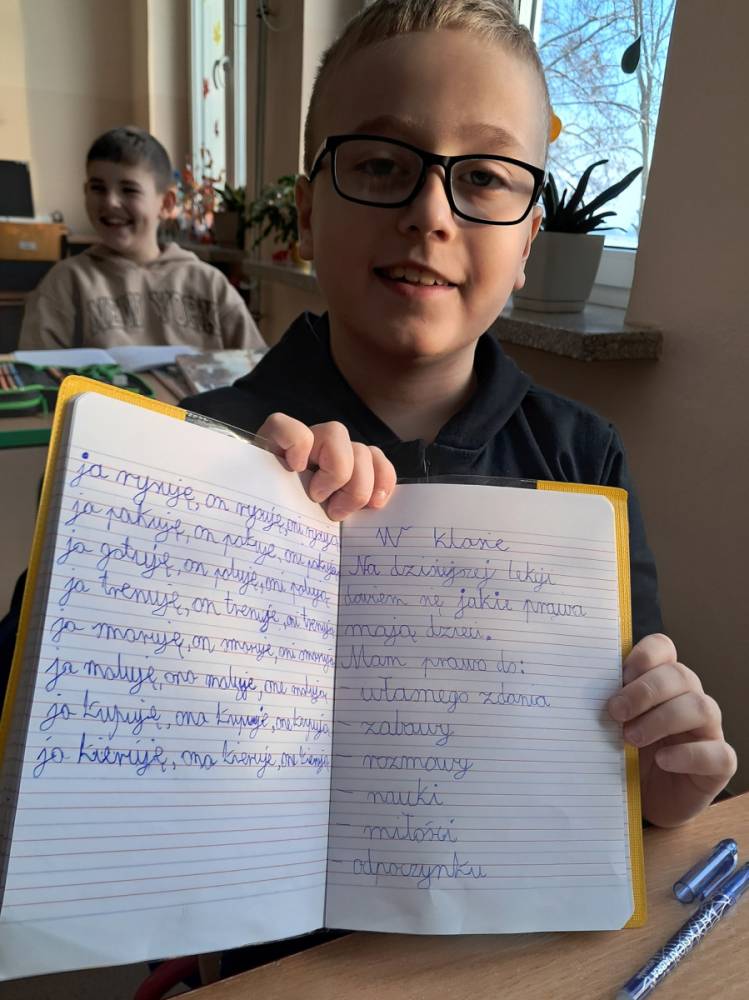 NEW YORK
ja rysuję, on rysuje, oni rysują
ja pakuję, on pakuje, oni pakują
ja gotuję, on gotuje, oni gotują
ja trenuję, on trenuje, oni trenują
ja smaruję, on smaruje, oni smarują
ja maluję, ona maluje, one malują
ja kupuję, ona kupuje, one kupują
ja kieruję, ona kieruje, one kierują
W klasie
Na dzisiejszej lekcji
dowiem się jakie prawa
mają dzieci.
Mam prawo do:
- własnego zdania
- zabawy
- rozmowy
- nauki
- miłości
- odpoczynku